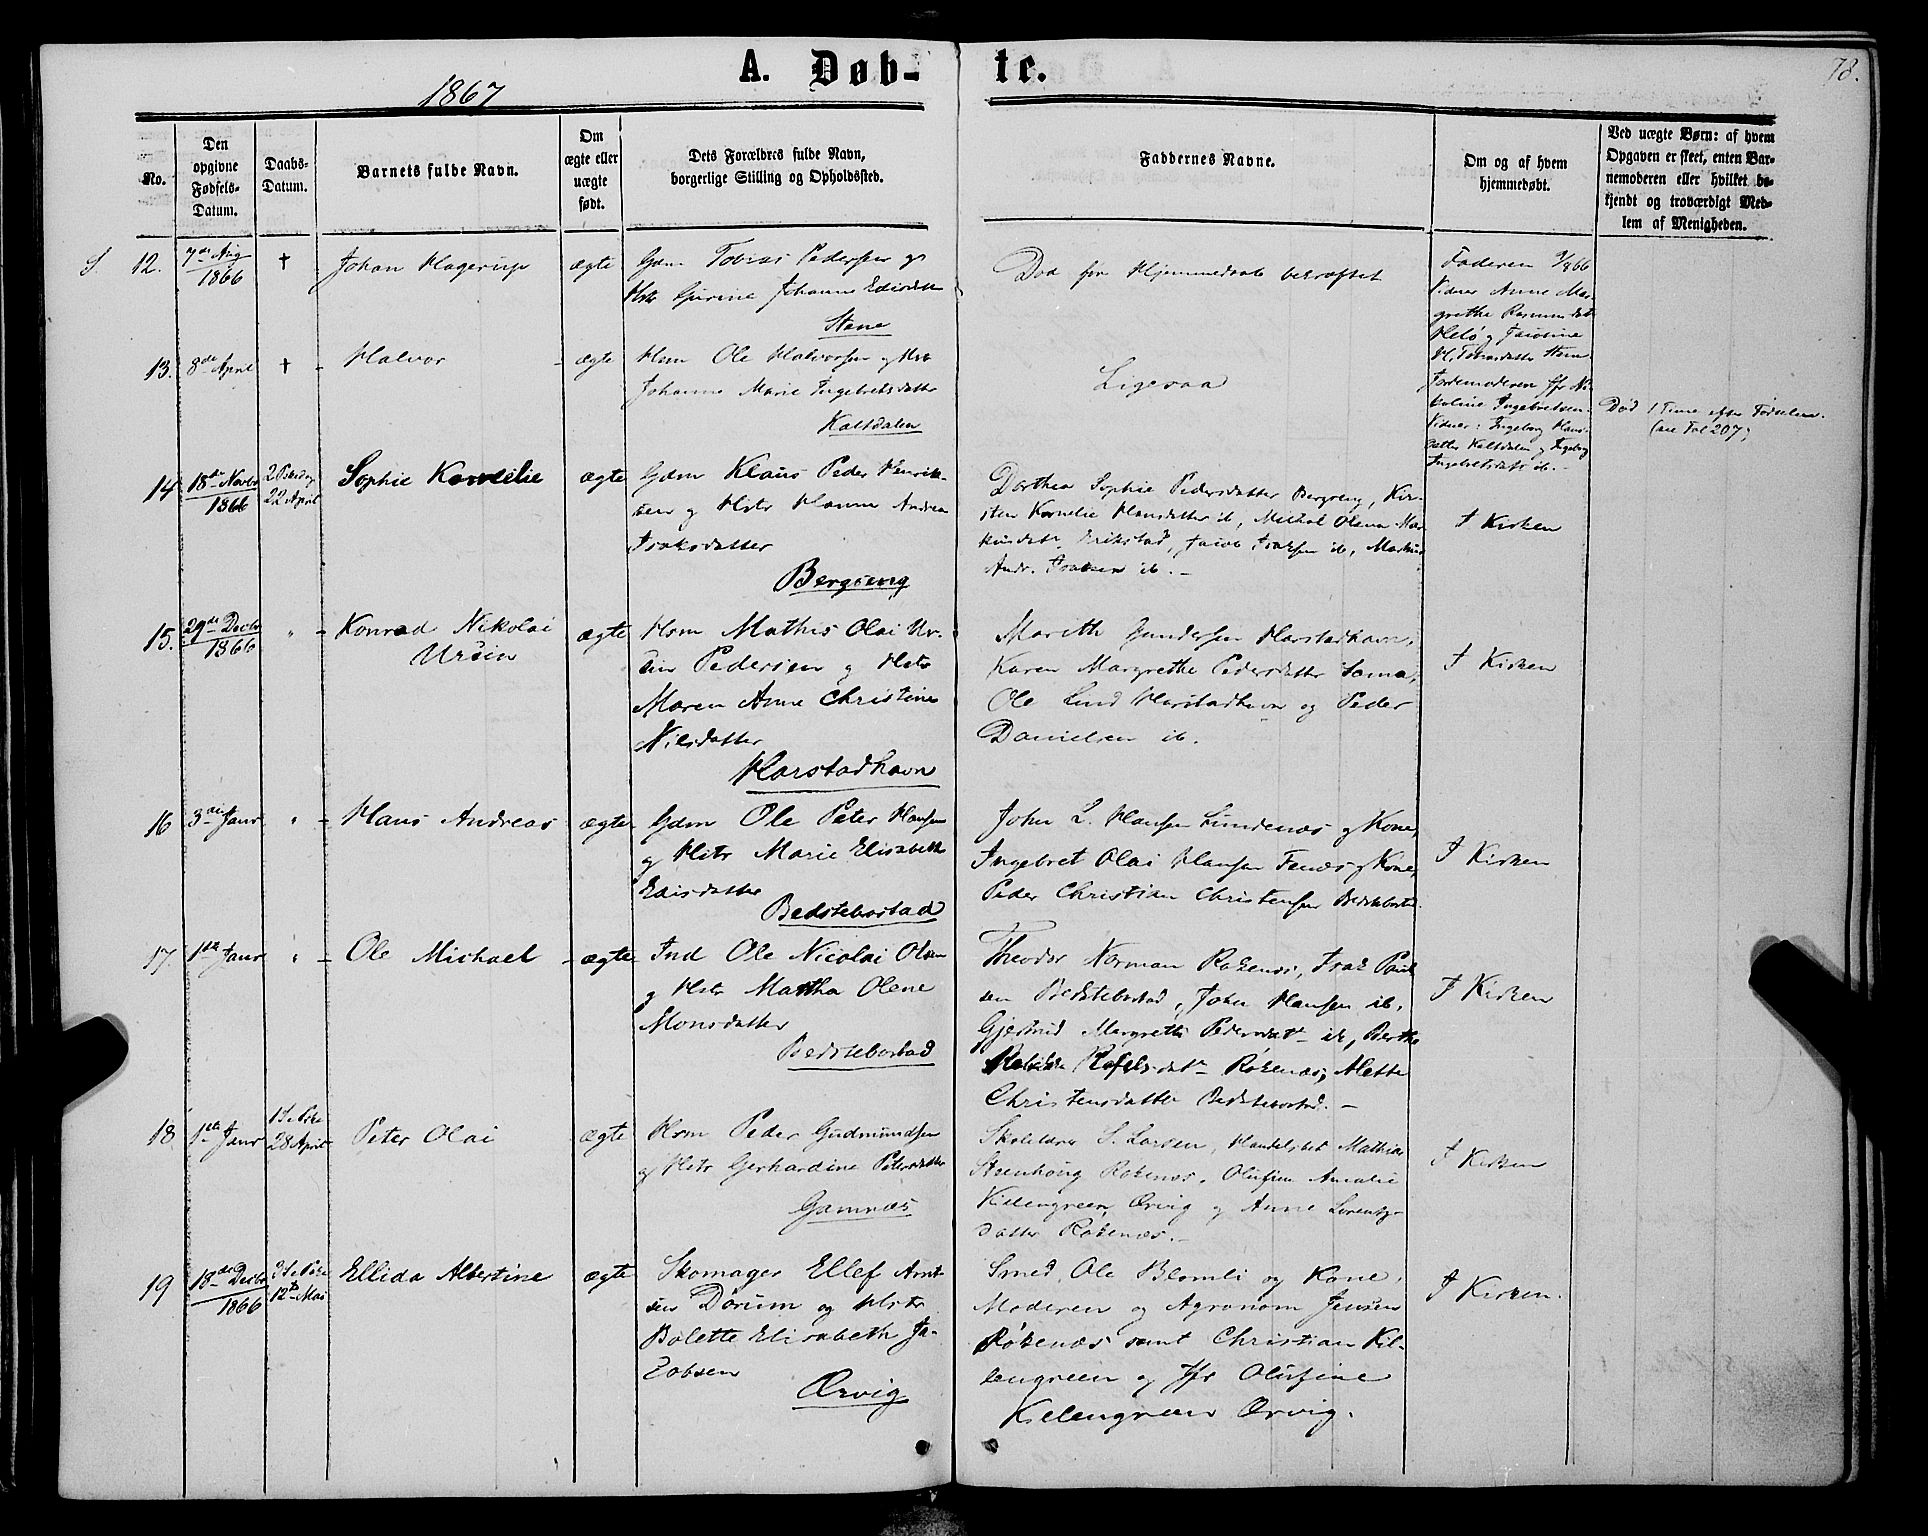 A. Døb- te.
78.
1867
No.
Den opgivne Fødsels-Datum.
Daabs-Datum.
Barnets fulde Navn.
Om ægte eller uægte født.
Dets Forældres fulde Navn, borgerlige Stilling og Opholdssted.
Faddernes Navne.
Om og af hvem hjemmedøbt.
Ved uægte Børn: af hvem
Opgaven er skeet, enten Bar-
nemoderen eller hvilket be-
kjendt og troværdigt Med-
lem af Menigheden.
S. 12. 7de Aug 1866 † Johan Hagerup ægte
Gdm Tobias Pedersen og
Hstr Gurine Johanne Edisdatt
Stene
Død før Hjemmedaab bekræftet
Faderen 9/8 66
Vidner Anne Mar-
grethe Rasmusdatt
og
13. 8de April † Halvor ægte
Hsm Ole Halvorsen og Hstr
Johanne Marie Ingebretsdatter
Kaltdalen
Ligesaa
Jordemoderen Jfr Ni-
koline Ingebretsen
Vidner: Ingeborg Hans-
datter Kaltdalen og Ingeborg
Ingebretsdatt ib. -
Død 1 Time efter Fødselen.
(see Fol 207)
14 18de Novbr 1866 2 Paaskedag 22 April Sophie Kornelie ægte
Gdm Klaus Peder Henrik-
sen og Hstr Hanna Andrea
Isaksdatter
Bergseng
Dorthea Sophie Pedersdatter Bergseng, Kir-
sten Kornelie Hansdatter ib, Michal Olena Mar-
kusdatr Erikstad, Jacob Isaksen ib, Markus
Andr. Isaksen ib. -
I Kirken
15. 29de Decbr 1866 " Konrad Nikolai
Ursin
ægte
Hsm Mathis Olai Ur-
sin Pedersen og Hstr
Maren Anne Christine
Nilsdatter
Harstadhavn
Marith Gundersen Harstadhavn,
Karen Margrethe Pedersdatter Sama,
Ole Lind Harstadhavn og Peder
Danielsen ib.
I Kirken
16 3die Janr " Hans Andreas ægte
Gdm Ole Peter Hansen
og Hstr Marie Elisabeth
Edisdatter
Bedstebostad
John L. Hansen Lundenæs og Kone,
Ingebret Olai Hansen Fenæs og Kone,
Peder Christian Christensen Bedstebostad
I Kirken
17. 1ste Janr " Ole Michael ægte
Ind Ole Nicolai Olsen
og Hstr Martha Olene
Monsdatter
Bedstebostad
Theodor Norman Røkenæs, Isak Paul-
sen Bedstebostad, John Hansen ib,
Gjertrud Margrethe Pedersdatr ib, Berthe
Rafelsdatr Røkenæs, Mette
Christensdatter Bedstebostad. -
I Kirken
18 1ste Janr 1 S. e. Paske 28 April Peter Olai ægte
Hsm Peder Gudmundsen
og Hstr Gerhardine Petersdatter
Gamnæs
Skolelærer S. Larsen, Handelsbet Mathias
Steenhoug Røkenæs, Olufine Amalie
Killengreen Ærvig og Anne Lorentz-
datter Røkenæs. -
I Kirken
19 18de Decbr 1866 3 S. e. Paske 12te Mai Ellida Albertine ægte
Skomager Ellef Arnt-
sen Dorum og Hstr
Bolette Elisabeth Ja-
kobsen
Ærvig
Smed Ole Blomli og Kone,
Moderen og Agronom Jensen
Røkenæs samt Christian Kil-
lengreen og Jfr Olufine
Killengreen Ærvig.
I Kirken.